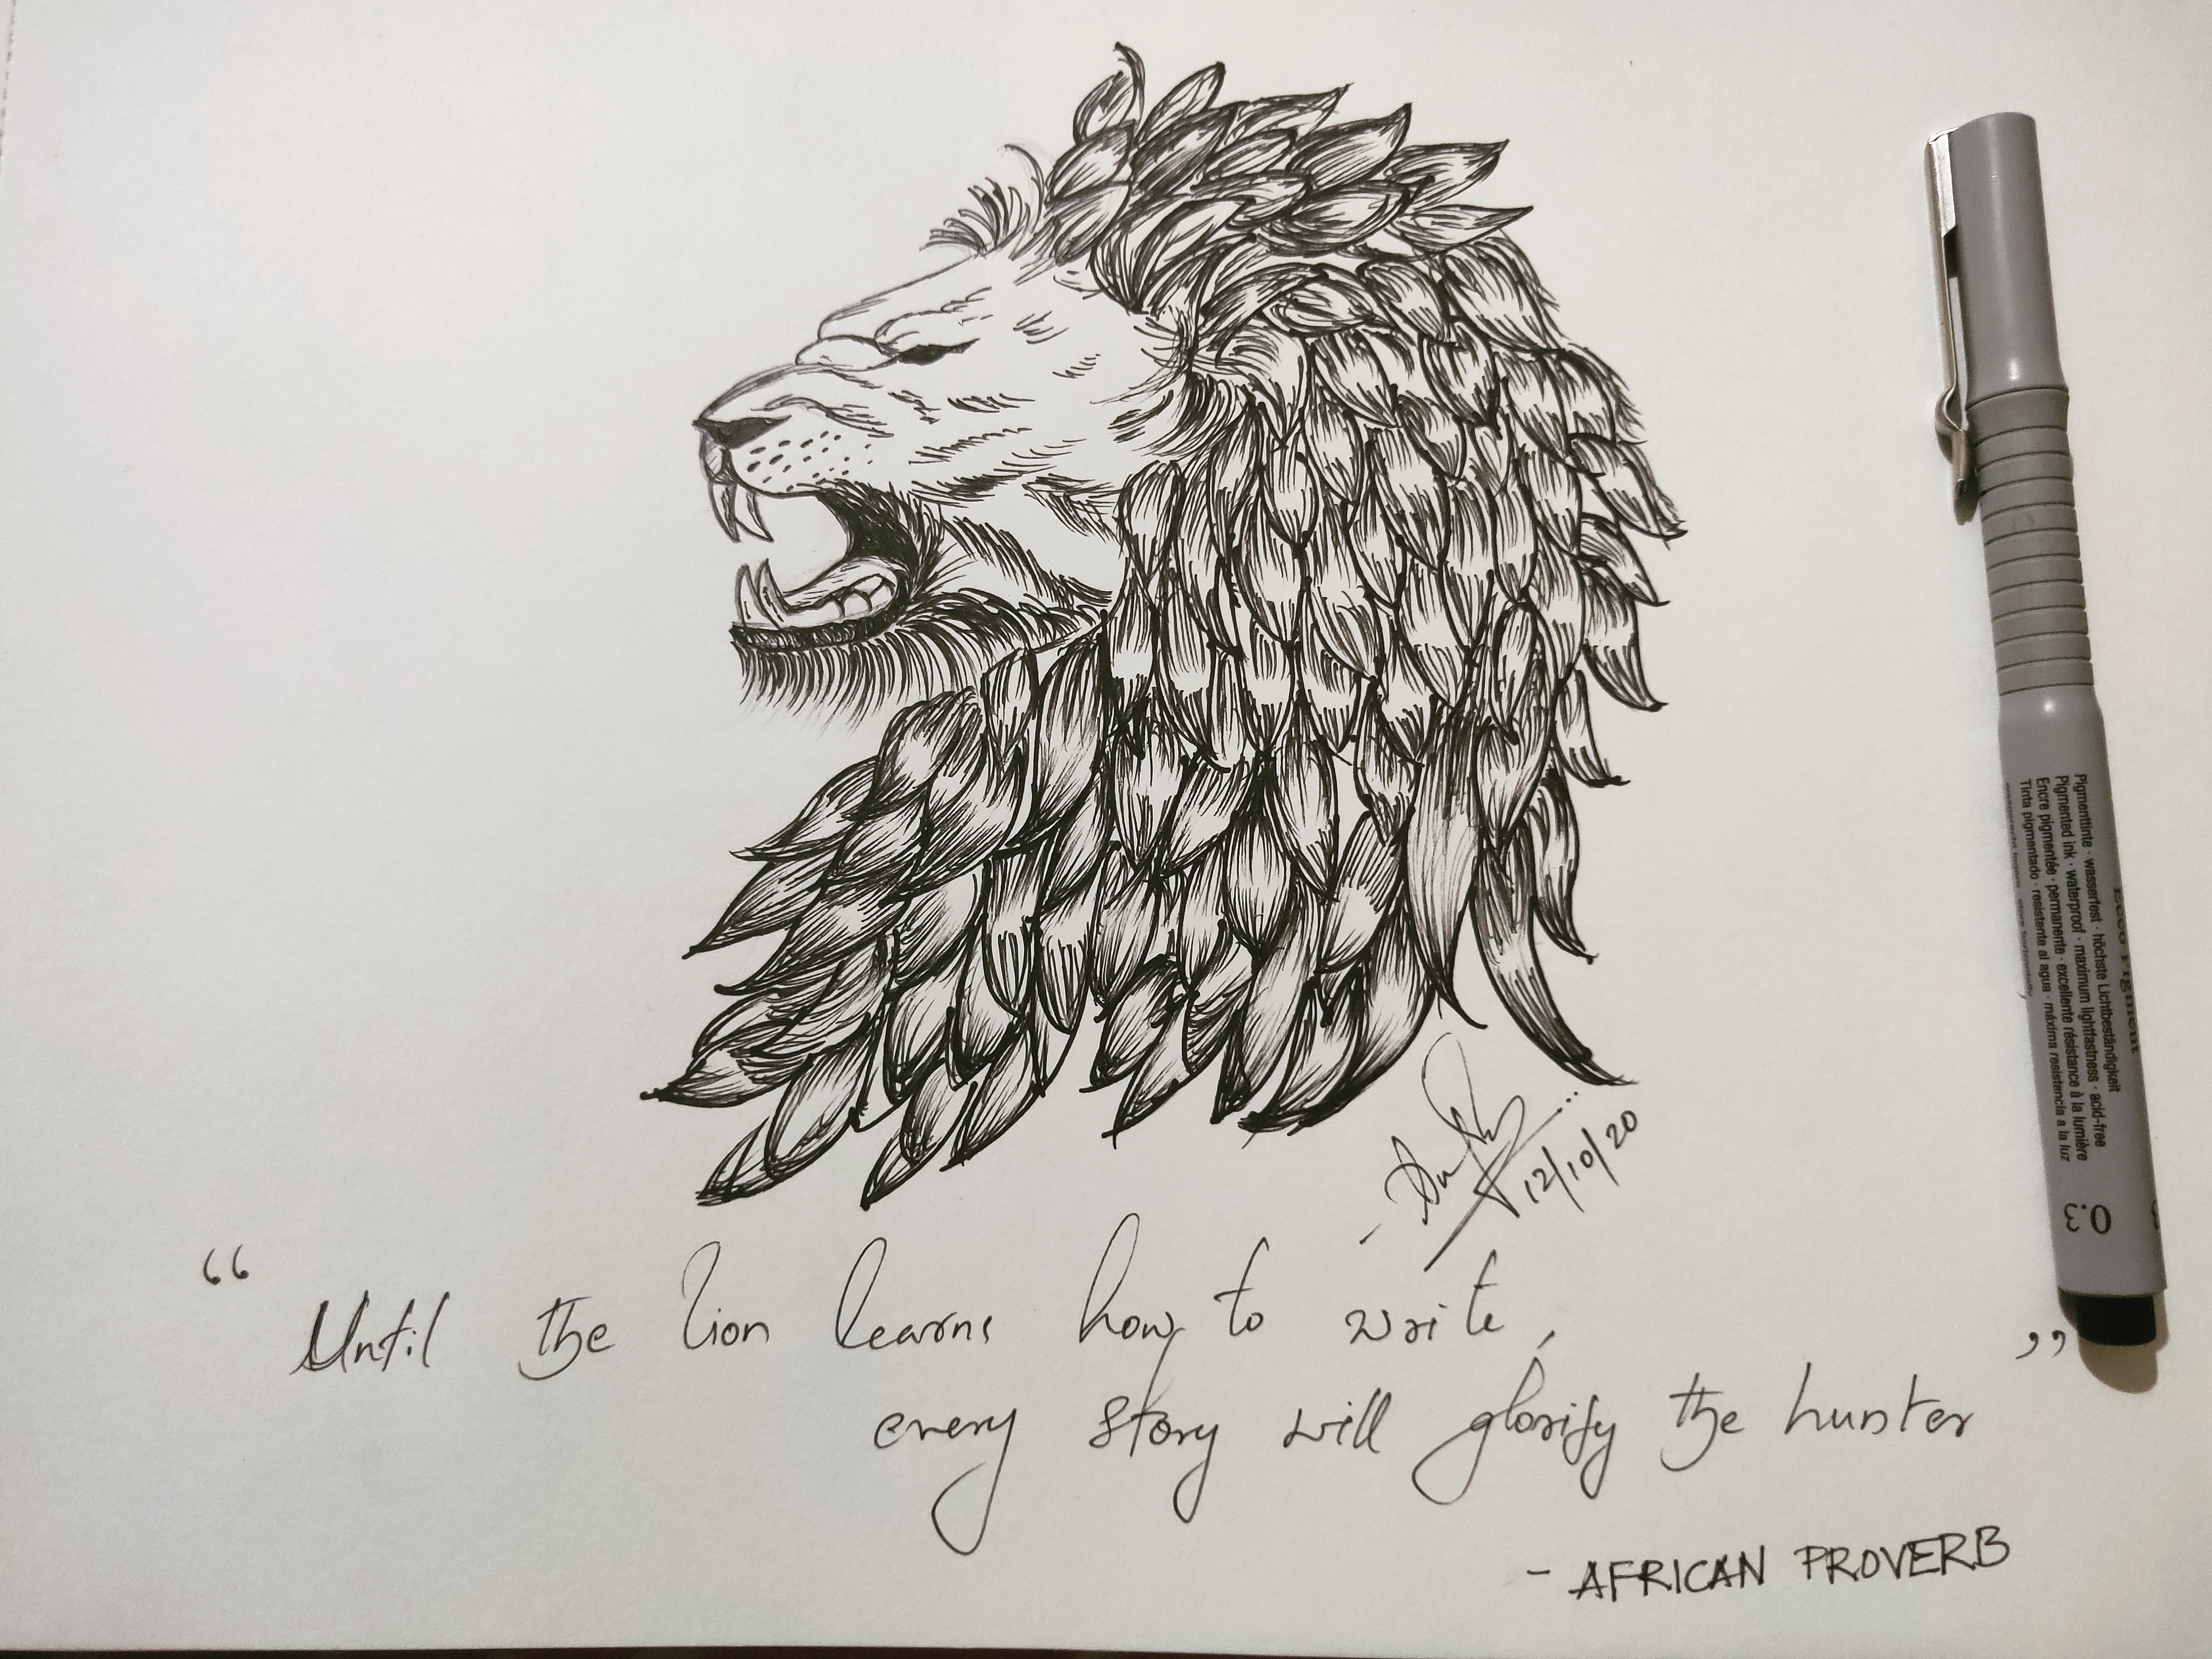 12/10/20
“ Until the lion learns how to write,
every story will glorify the hunter ”
- AFRICAN PROVERB
Pigmenttinte · wasserfest · höchste Lichtbeständigkeit
Pigmented ink · waterproof · maximum lightfastness · acid-free
Encre pigmentée · permanente · excellente résistance à la lumière
Tinta pigmentado · resistente al agua · máxima resistencia a la luz
0.3